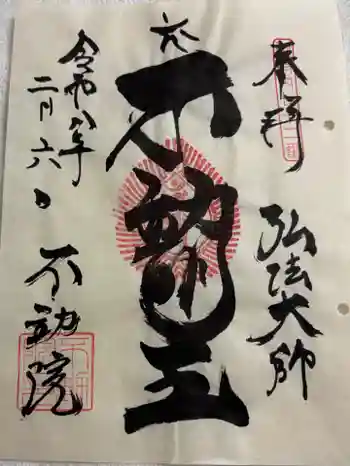 奉拝
弘法大師
六
不動明王
令和八年
二月六日
不動院